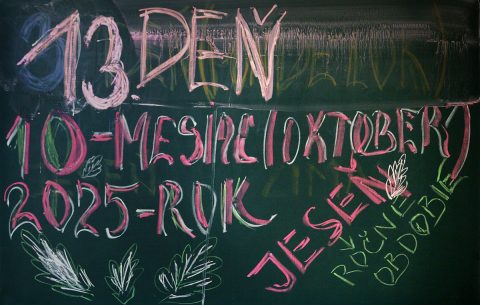 13. DEŇ
10-MESIAC(OKTÓBER)
2025-ROK
JESEŇ
ROČNÉ
OBDOBIE